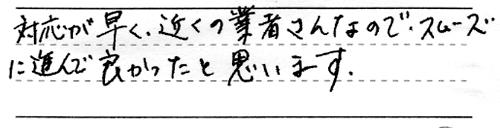 対応が早く、近くの業者さんなので、スムーズ
に進んで良かったと思います。